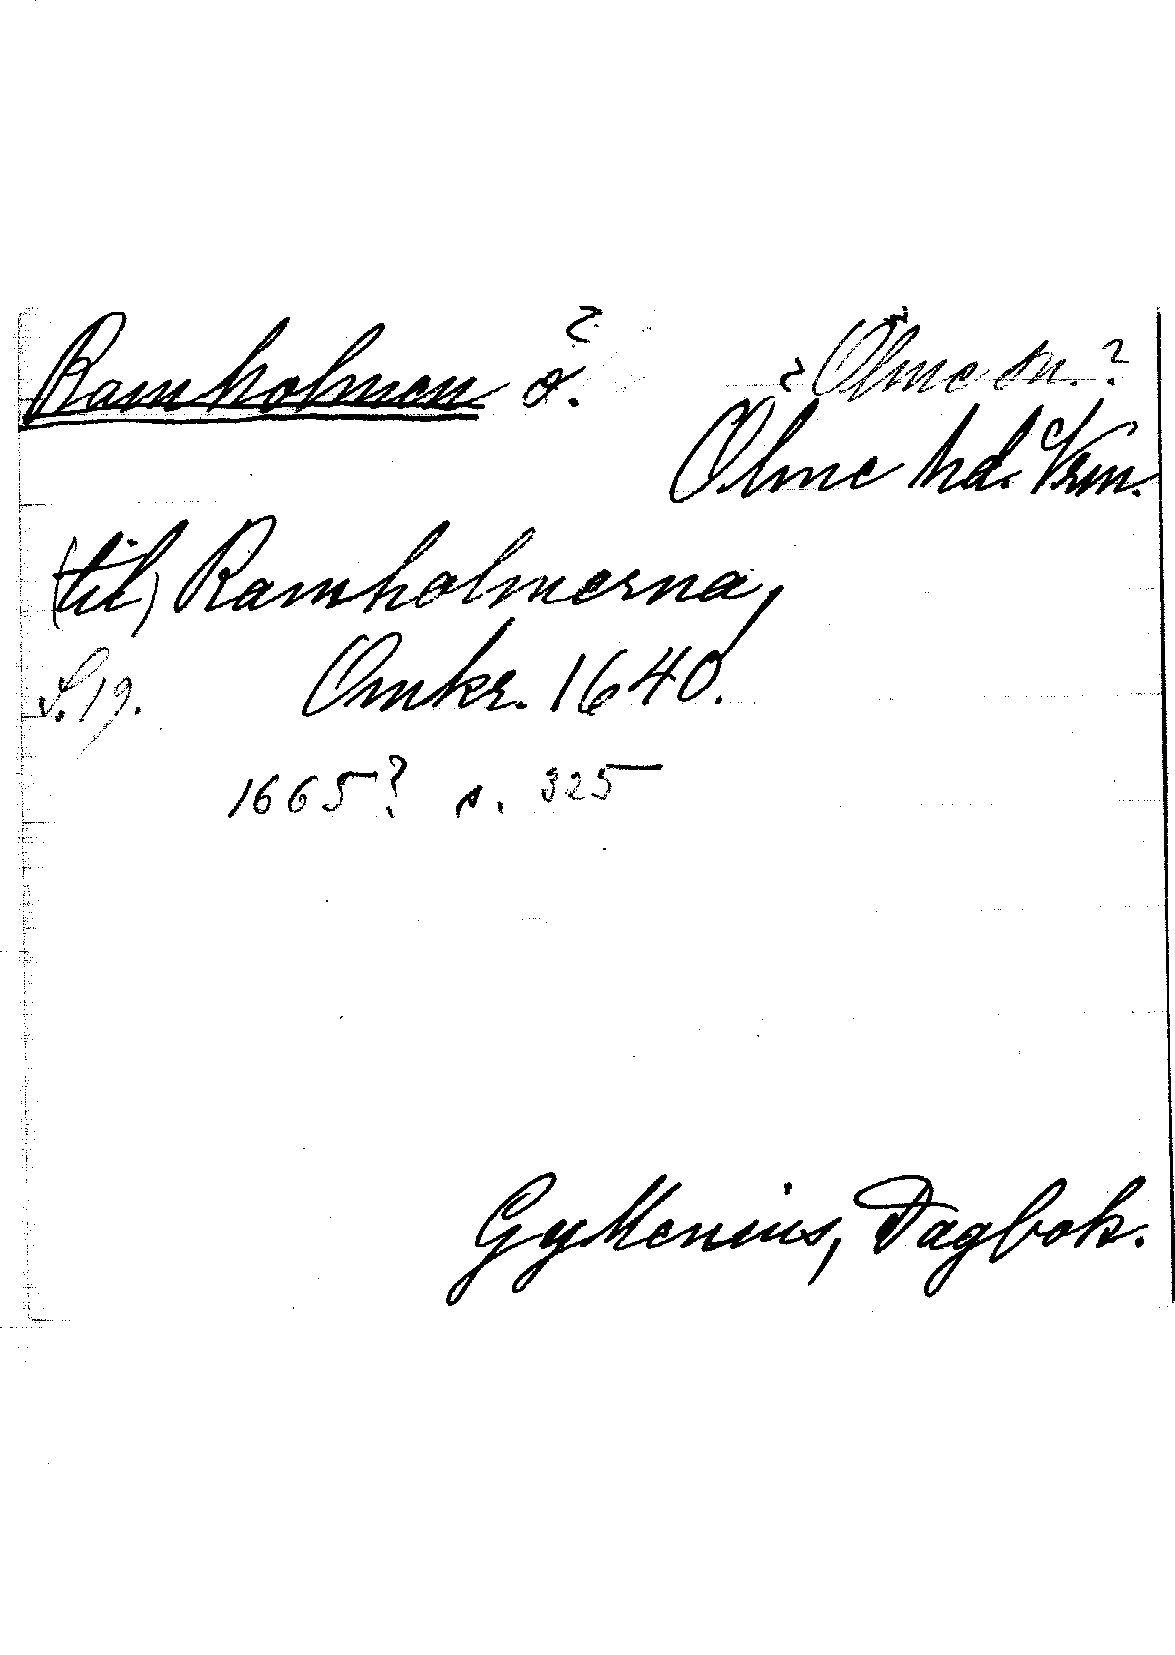 Ramholmen ö. ?
? Ölme sn. ?
Ölme hd. Vrm.
(til) Ramholmerna,
S. 19. Omkr. 1640.
1665? s. 325
Gyllenius, Dagbok.